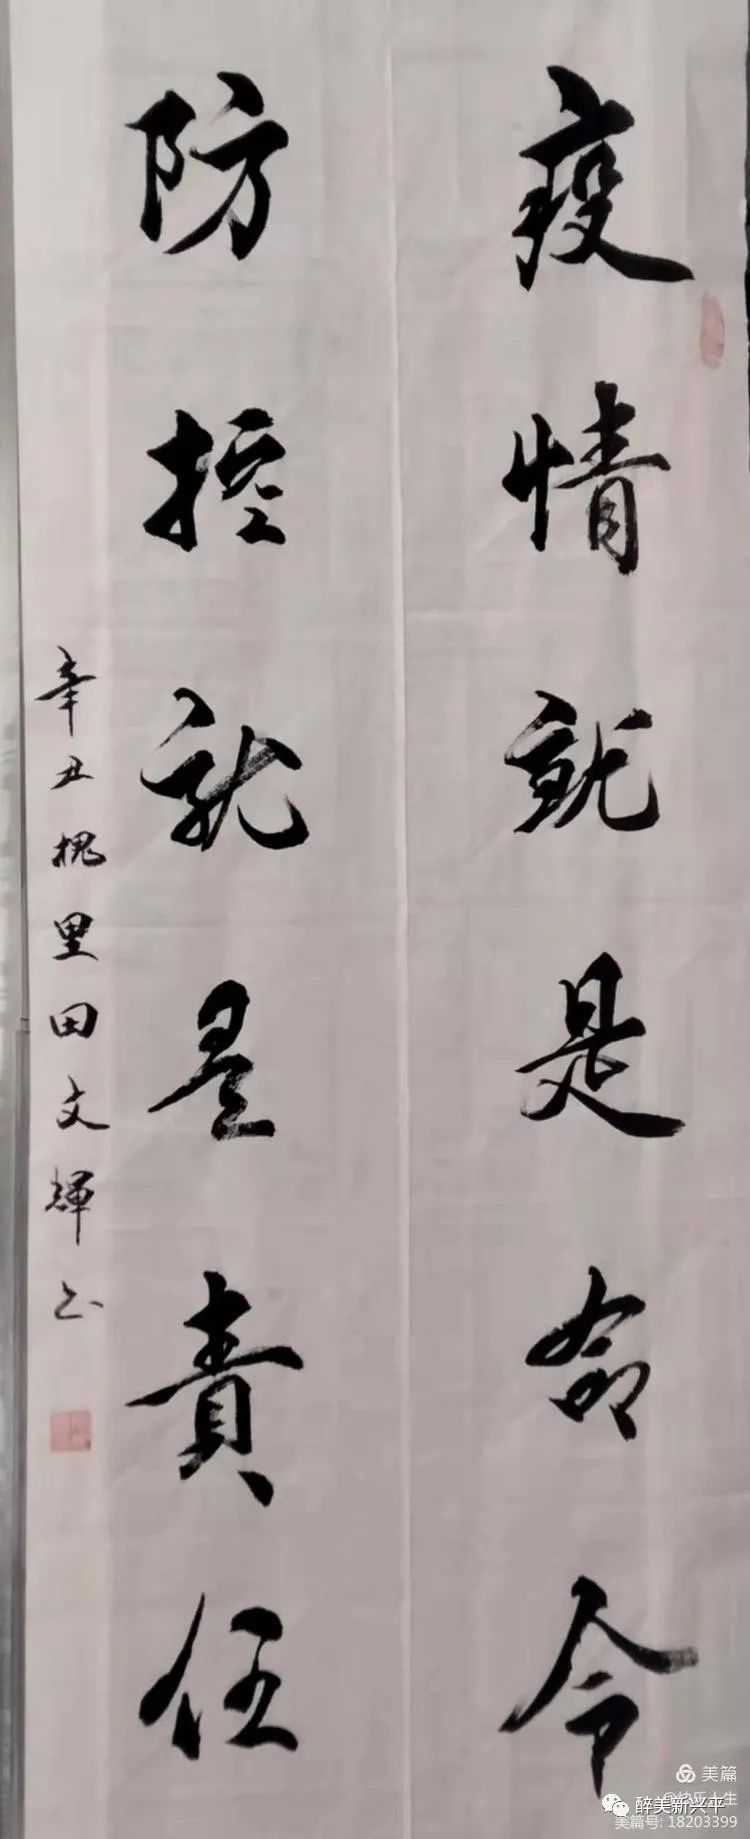 疫情就是命令
防控就是責任
辛丑槐里田文輝书
美篇
@快乐人生
醉美新兴平
美篇号: 18203399